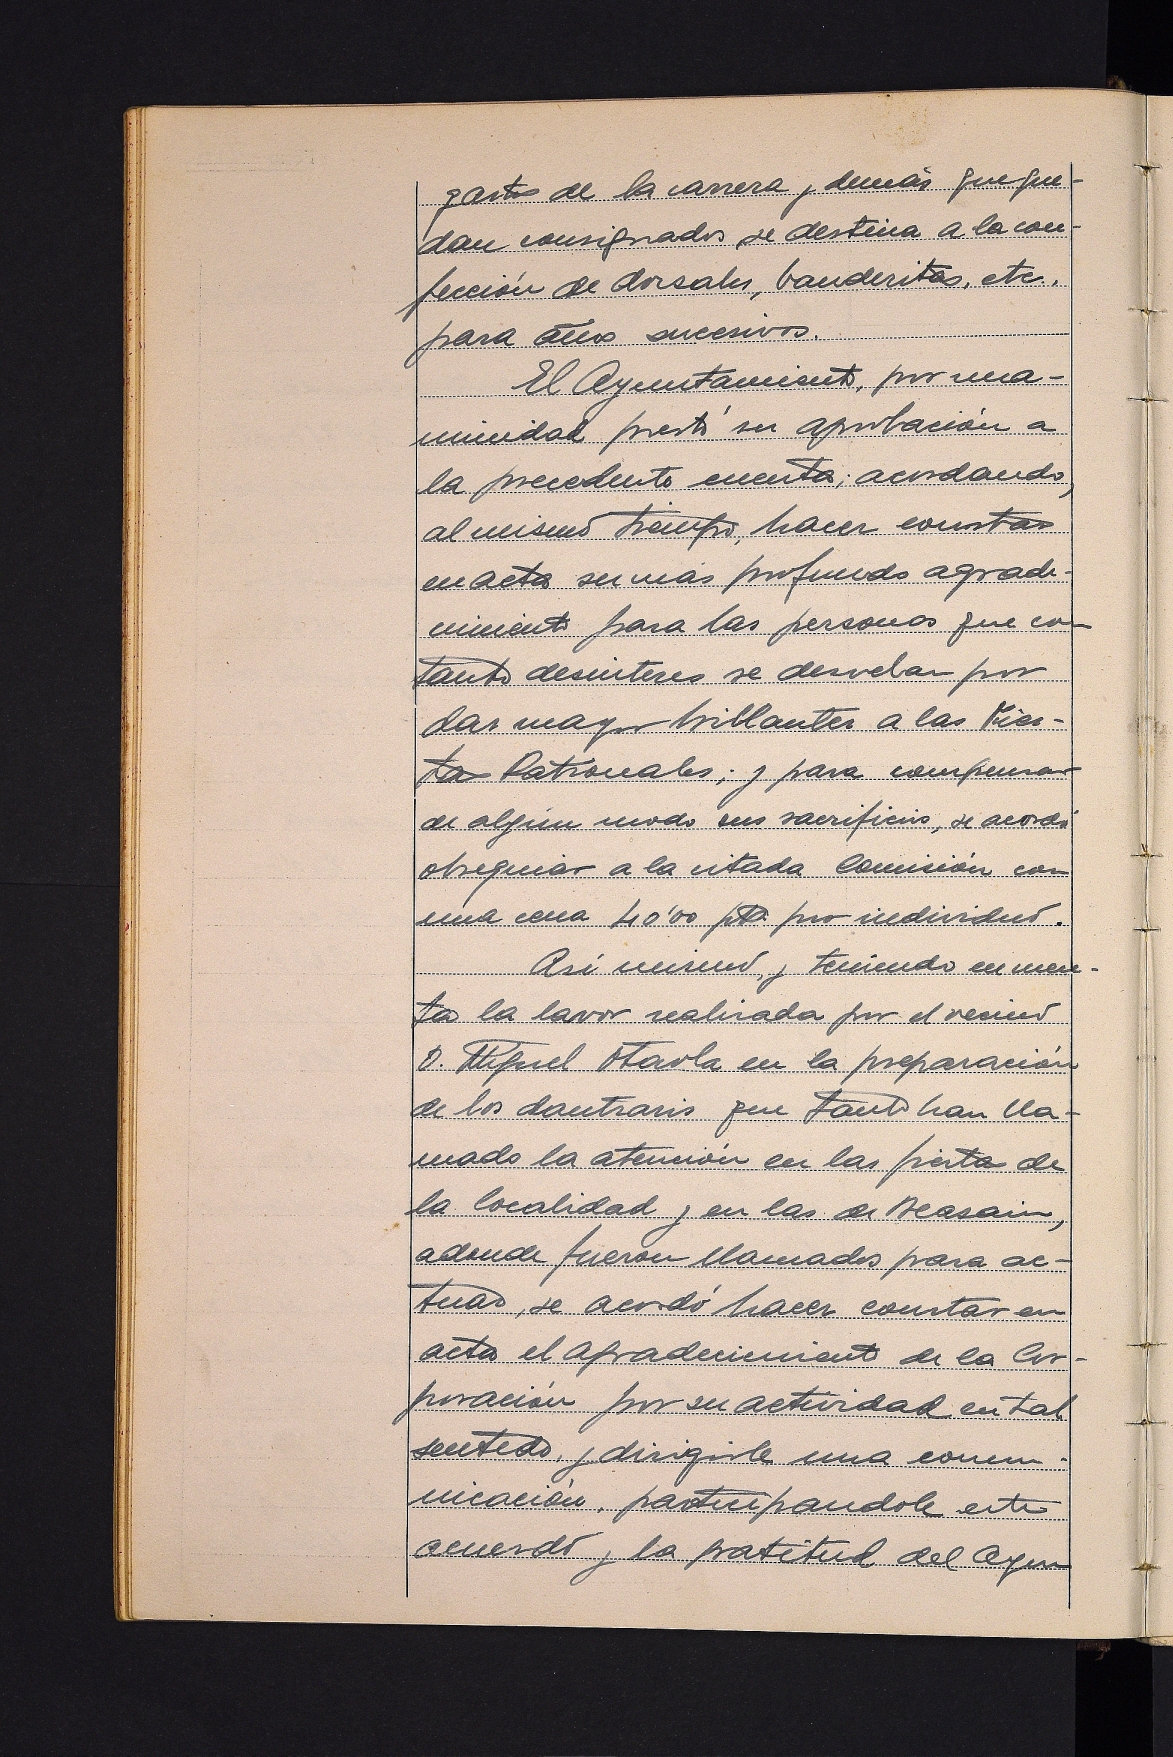 gasto de la carrera y demás que que-
dan consignados se destina a la con-
fección de dorsales, banderitas, etc.,
para años sucesivos.
El Ayuntamiento, por una-
nimidad prestó su aprobación a
la precedente cuenta; acordando,
al mismo tiempo, hacer constar
en acta su más profundo agrade-
cimiento para las personas que con
tanto desinteres se desvelan por
dar mayor brillantez a las Fies-
tas Patronales; y para compensar
de algún modo sus sacrificios, se acordó
obsequiar a la citada Comisión con
una cena 40'00 pts. por individuo.
Asi mismo, y teniendo en cuen-
ta la lavor realizada por el vecino
D. Miguel Otaola en la preparación
de los dantzaris que tanto han lla-
mado la atención en las fiestas de
la localidad y en las de Beasain,
adonde fueron llamados para ac-
tuar, se acordó hacer constar en
acta el agradecimiento de la Cor-
poración por su actividad en tal
sentido, y dirigirle una comu-
nicación, participandole este
acuerdo y la gratitud del Ayun